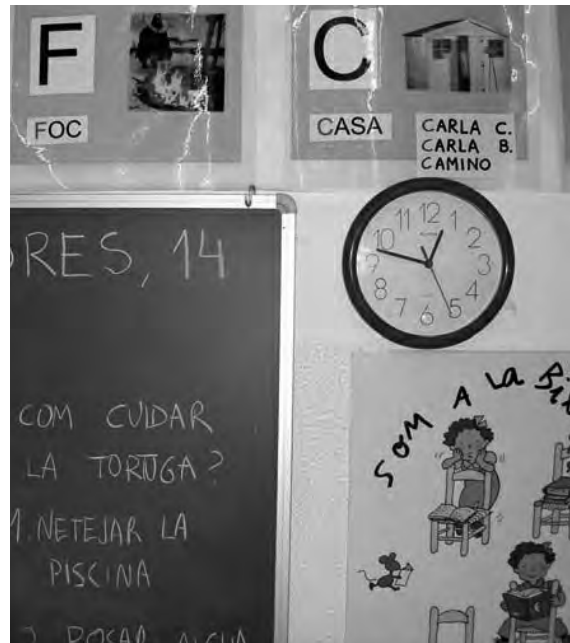 F
FOC
C
CASA
CARLA C.
CARLA B.
CAMINO
RES, 14
COM CUIDAR
LA TORTUGA?
1. NETEJAR LA
PISCINA
POSAR AIGUA
12
1
2
3
4
5
6
7
8
9
10
11
SOM A LA